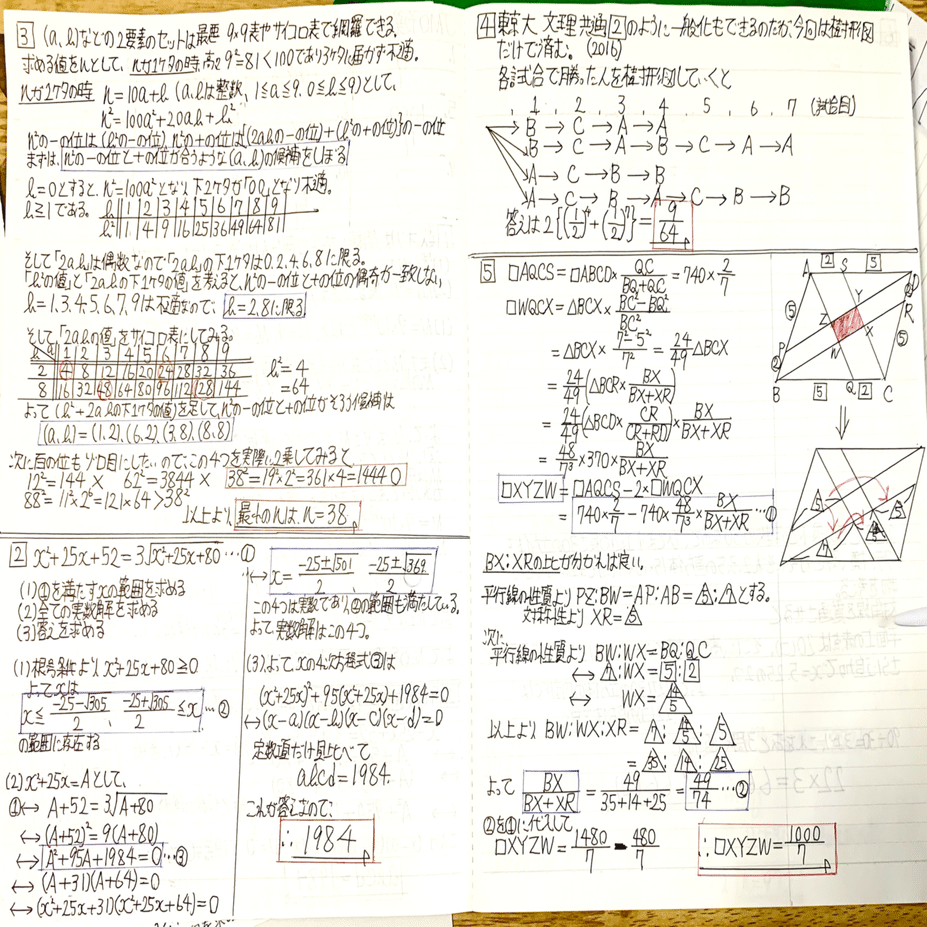 3 (a,b)などの2要素のセットは最悪 9×9表やサイコロ表で網羅できる。
求める値をnとして、nが1ケタの時、高々9²=81<100であり3ケタに届かず不適。
nが2ケタの時 n=10a+b (a,bは整数、1≦a≦9, 0≦b≦9)として、
n²=100a²+20ab+b²
n²の一の位は(b²の一の位) n²の十の位は{(2abの一の位)+(b²の十の位)}の一の位
まずは、n²の一の位と十の位が合うような(a,b)の候補をしぼる
b=0とすると、n²=100a²となり下2ケタが「00」となり不適。
b≧1である。
b 1 2 3 4 5 6 7 8 9
b² 1 4 9 16 25 36 49 64 81
そして「2ab」は偶数なので「2ab」の下1ケタは0,2,4,6,8に限る。
「b²の値」と「2abの下1ケタの値」を考えると、n²の一の位と十の位の偶奇が一致しない
b=1,3,4,5,6,7,9は不適なので、b=2,8に限る
そして「2abの値」をサイコロ表にしてみる。
b a 1 2 3 4 5 6 7 8 9
2 4 8 12 16 20 24 28 32 36 b²=4
8 16 32 48 64 80 96 112 128 144 =64
よって(b²+2abの下1ケタの値)を足して、n²の一の位と十の位がそろう候補は
(a,b)=(1,2),(6,2),(3,8),(8,8)
次に百の位もゾロ目にしたいので、この4つを実際に2乗してみると、
12²=144 × 62²=3844 × 38²=19²×2²=361×4=1444 ○
88²=11²×2⁶=121×64>38²
以上より、最小のnは、n=38
2 x²+25x+52=3√x²+25x+80 …①
(1)①を満たすxの範囲を求める
(2)全ての実数解を求める
(3)答えを求める
(1)根号条件よりx²+25x+80≧0
よってxは
x≦ -25-√305/2、-25+√305/2 ≦x …②
の範囲に存在する
(2)x²+25x=Aとして、
①↔A+52=3√A+80
↔(A+52)²=9(A+80)
↔A²+95A+1984=0 …③
↔(A+31)(A+64)=0
↔(x²+25x+31)(x²+25x+64)=0
↔x= -25±√501/2 -25±√369/2
この4つは実数であり、②の範囲も満たしている。
よって実数解はこの4つ。
(3)よって、xの4次方程式③は
(x²+25x)²+95(x²+25x)+1984=0
↔(x-a)(x-b)(x-c)(x-d)=0
定数項だけ見比べて
abcd=1984.
これが答えなので、
∴1984
4 東京大 文理共通2のように一般化もできるのだが、今回は樹形図
だけで済む。(2016)
各試合で勝った人を樹形図していくと
1, 2, 3, 4, 5, 6, 7 (試合目)
B→C→A→A
B→C→A→B→C→A→A
A→C→B→B
A→C→B→A→C→B→B
答えは2{(1/2)⁴+(1/2)⁷}=9/64
5 □AQCS=□ABCD×QC/BQ+QC=740×2/7
□WQCX=△BCX×BC²-BQ²/BC²
=△BCX×7²-5²/7²=24/49△BCX
=24/49(△BCR×BX/BX+XR)
=24/49(△BCD×CR/CR+RD)×BX/BX+XR
=48/7³×370×BX/BX+XR
□XYZW=□AQCS-2×□WQCX
=740×2/7-740×48/7³×BX/BX+XR …①
BX:XRの比が分かれば良い。
平行線の性質よりPZ:BW=AP:AB=5:7とする。
対称性よりXR=5
次に
平行線の性質より BW:WX=BQ:QC
↔7:WX=5:2
↔WX=14/5
以上より BW:WX:XR=7:14/5:5
=35:14:25
よって BX/BX+XR=49/35+14+25=49/74 …②
②を①に代入して
□XYZW=1480/7-480/7
∴□XYZW=1000/7
A 2 S 5 D
2
Y
R
5
Z
X
5
P
W
2
B 5 Q 2 C
5
5
7
14/5